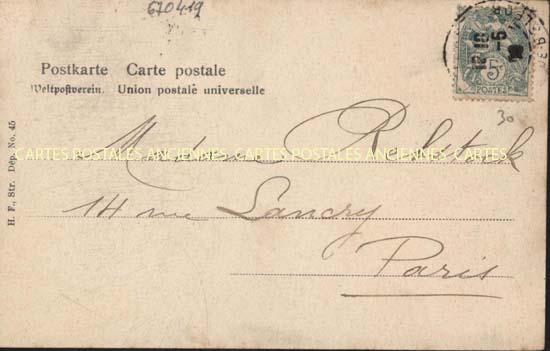 670419
Postkarte Carte postale
Weltpostverein. Union postale universelle
5c
POSTES
12 10
-5
30
H. F., Str. Dép. No. 45
CARTES POSTALES ANCIENNES CARTES POSTALES ANCIENNES CARTES
Madame
14 rue Lancry
Paris